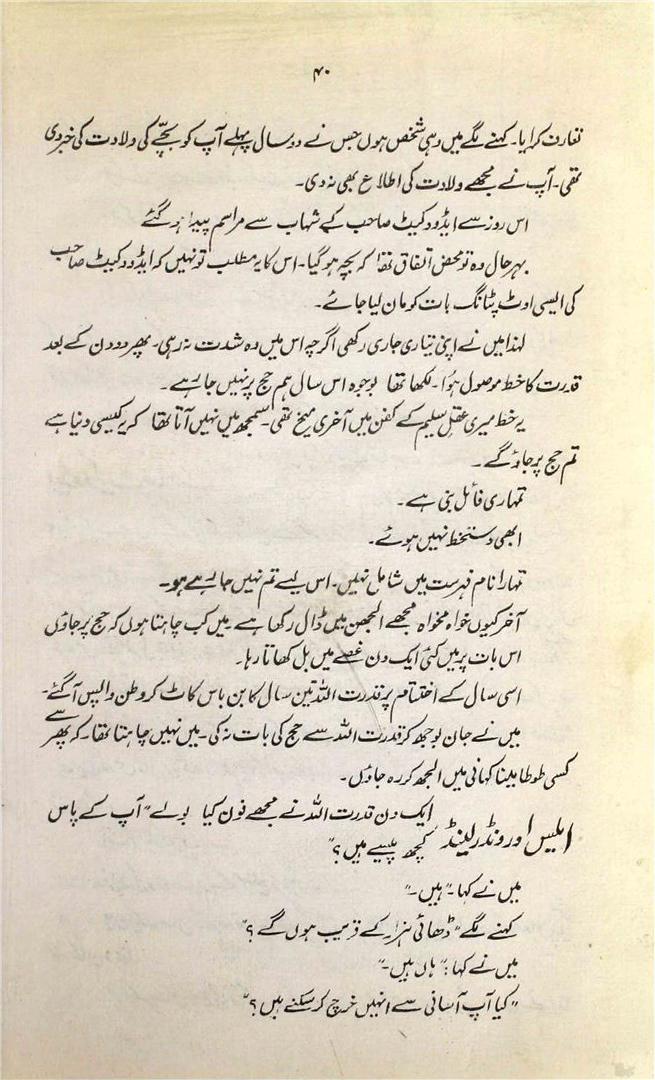 ۴۰
تعارف کرایا۔ کہنے لگے میں وہی شخص ہوں جس نے دو سال پہلے آپ کو بچے کی ولادت کی خبر دی
تھی۔ آپ نے مجھے ولادت کی اطلاع بھی نہ دی۔
اس روز سے ایڈووکیٹ صاحب کے شہاب سے مراسم پیدا ہو گئے
بہرحال وہ تو محض اتفاق تھا کہ بچہ ہو گیا۔ اس کا یہ مطلب تو نہیں کہ ایڈووکیٹ صاحب
کی ایسی اوٹ پٹانگ بات کو مان لیا جائے۔
لہٰذا میں نے اپنی تیاری جاری رکھی اگرچہ اس میں وہ شدت نہ رہی۔ پھر دو دن کے بعد
قدرت کا خط موصول ہوا۔ لکھا تھا بوجوہ اس سال ہم حج پر نہیں جا رہے۔
یہ خط میری عقل سلیم کے کفن میں آخری میخ تھی۔ سمجھ میں نہیں آتا تھا کہ یہ کیسی دنیا ہے
تم حج پر جاؤ گے۔
تمہاری فائل بنی ہے۔
ابھی دستخط نہیں ہوئے۔
تمہارا نام فہرست میں شامل نہیں۔ اس لیے تم نہیں جا رہے ہو۔
آخر کیوں خواہ مخواہ مجھے الجھن میں ڈال رکھا ہے۔ میں کب چاہتا ہوں کہ حج پر جاؤں
اس بات پر میں کئی ایک دن غصے میں بل کھاتا رہا۔
اسی سال کے اختتام پر قدرت اللہ تین سال کا بن باس کاٹ کر وطن واپس آ گئے۔
میں نے جان بوجھ کر قدرت اللہ سے حج کی بات نہ کی۔ میں نہیں چاہتا تھا۔ کہ پھر سے
کسی طوطا مینا کہانی میں الجھ کر رہ جاؤں۔
ایلیس اور ونڈر لینڈ ایک دن قدرت اللہ نے مجھے فون کیا بولے "آپ کے پاس
کچھ پیسے ہیں؟"
میں نے کہا۔ "ہیں۔"
کہنے لگے "ڈھائی ہزار کے قریب ہوں گے؟"
میں نے کہا: "ہاں ہیں۔"
"کیا آپ آسانی سے انہیں خرچ کر سکتے ہیں؟"